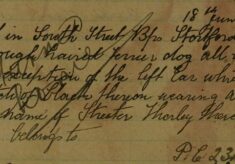 18th June
in South Street Bps Stortford
rough haired terrier dog all
exception of the left Ear whi
of Black thereon wearing a
name of Streeter Thorley
belongs to
P.C 23